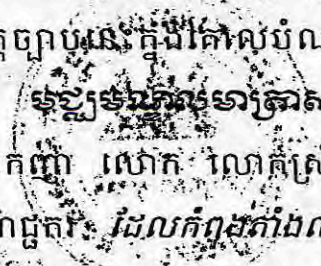 ច្បាប់នេះក្នុងគោលបំណ
មជ្ឈមណ្ឌលមាត្រាស
កញ្ញា លោក លោកស្រ
ដែលកំពុងតាំងល